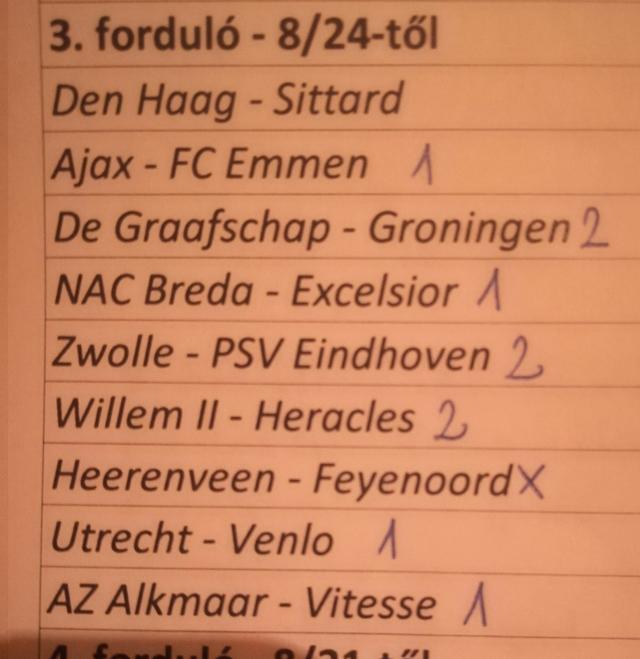 3. forduló - 8/24-től
Den Haag - Sittard
Ajax - FC Emmen 1
De Graafschap - Groningen 2
NAC Breda - Excelsior 1
Zwolle - PSV Eindhoven 2
Willem II - Heracles 2
Heerenveen - Feyenoord X
Utrecht - Venlo 1
AZ Alkmaar - Vitesse 1
4. forduló - 8/31-től